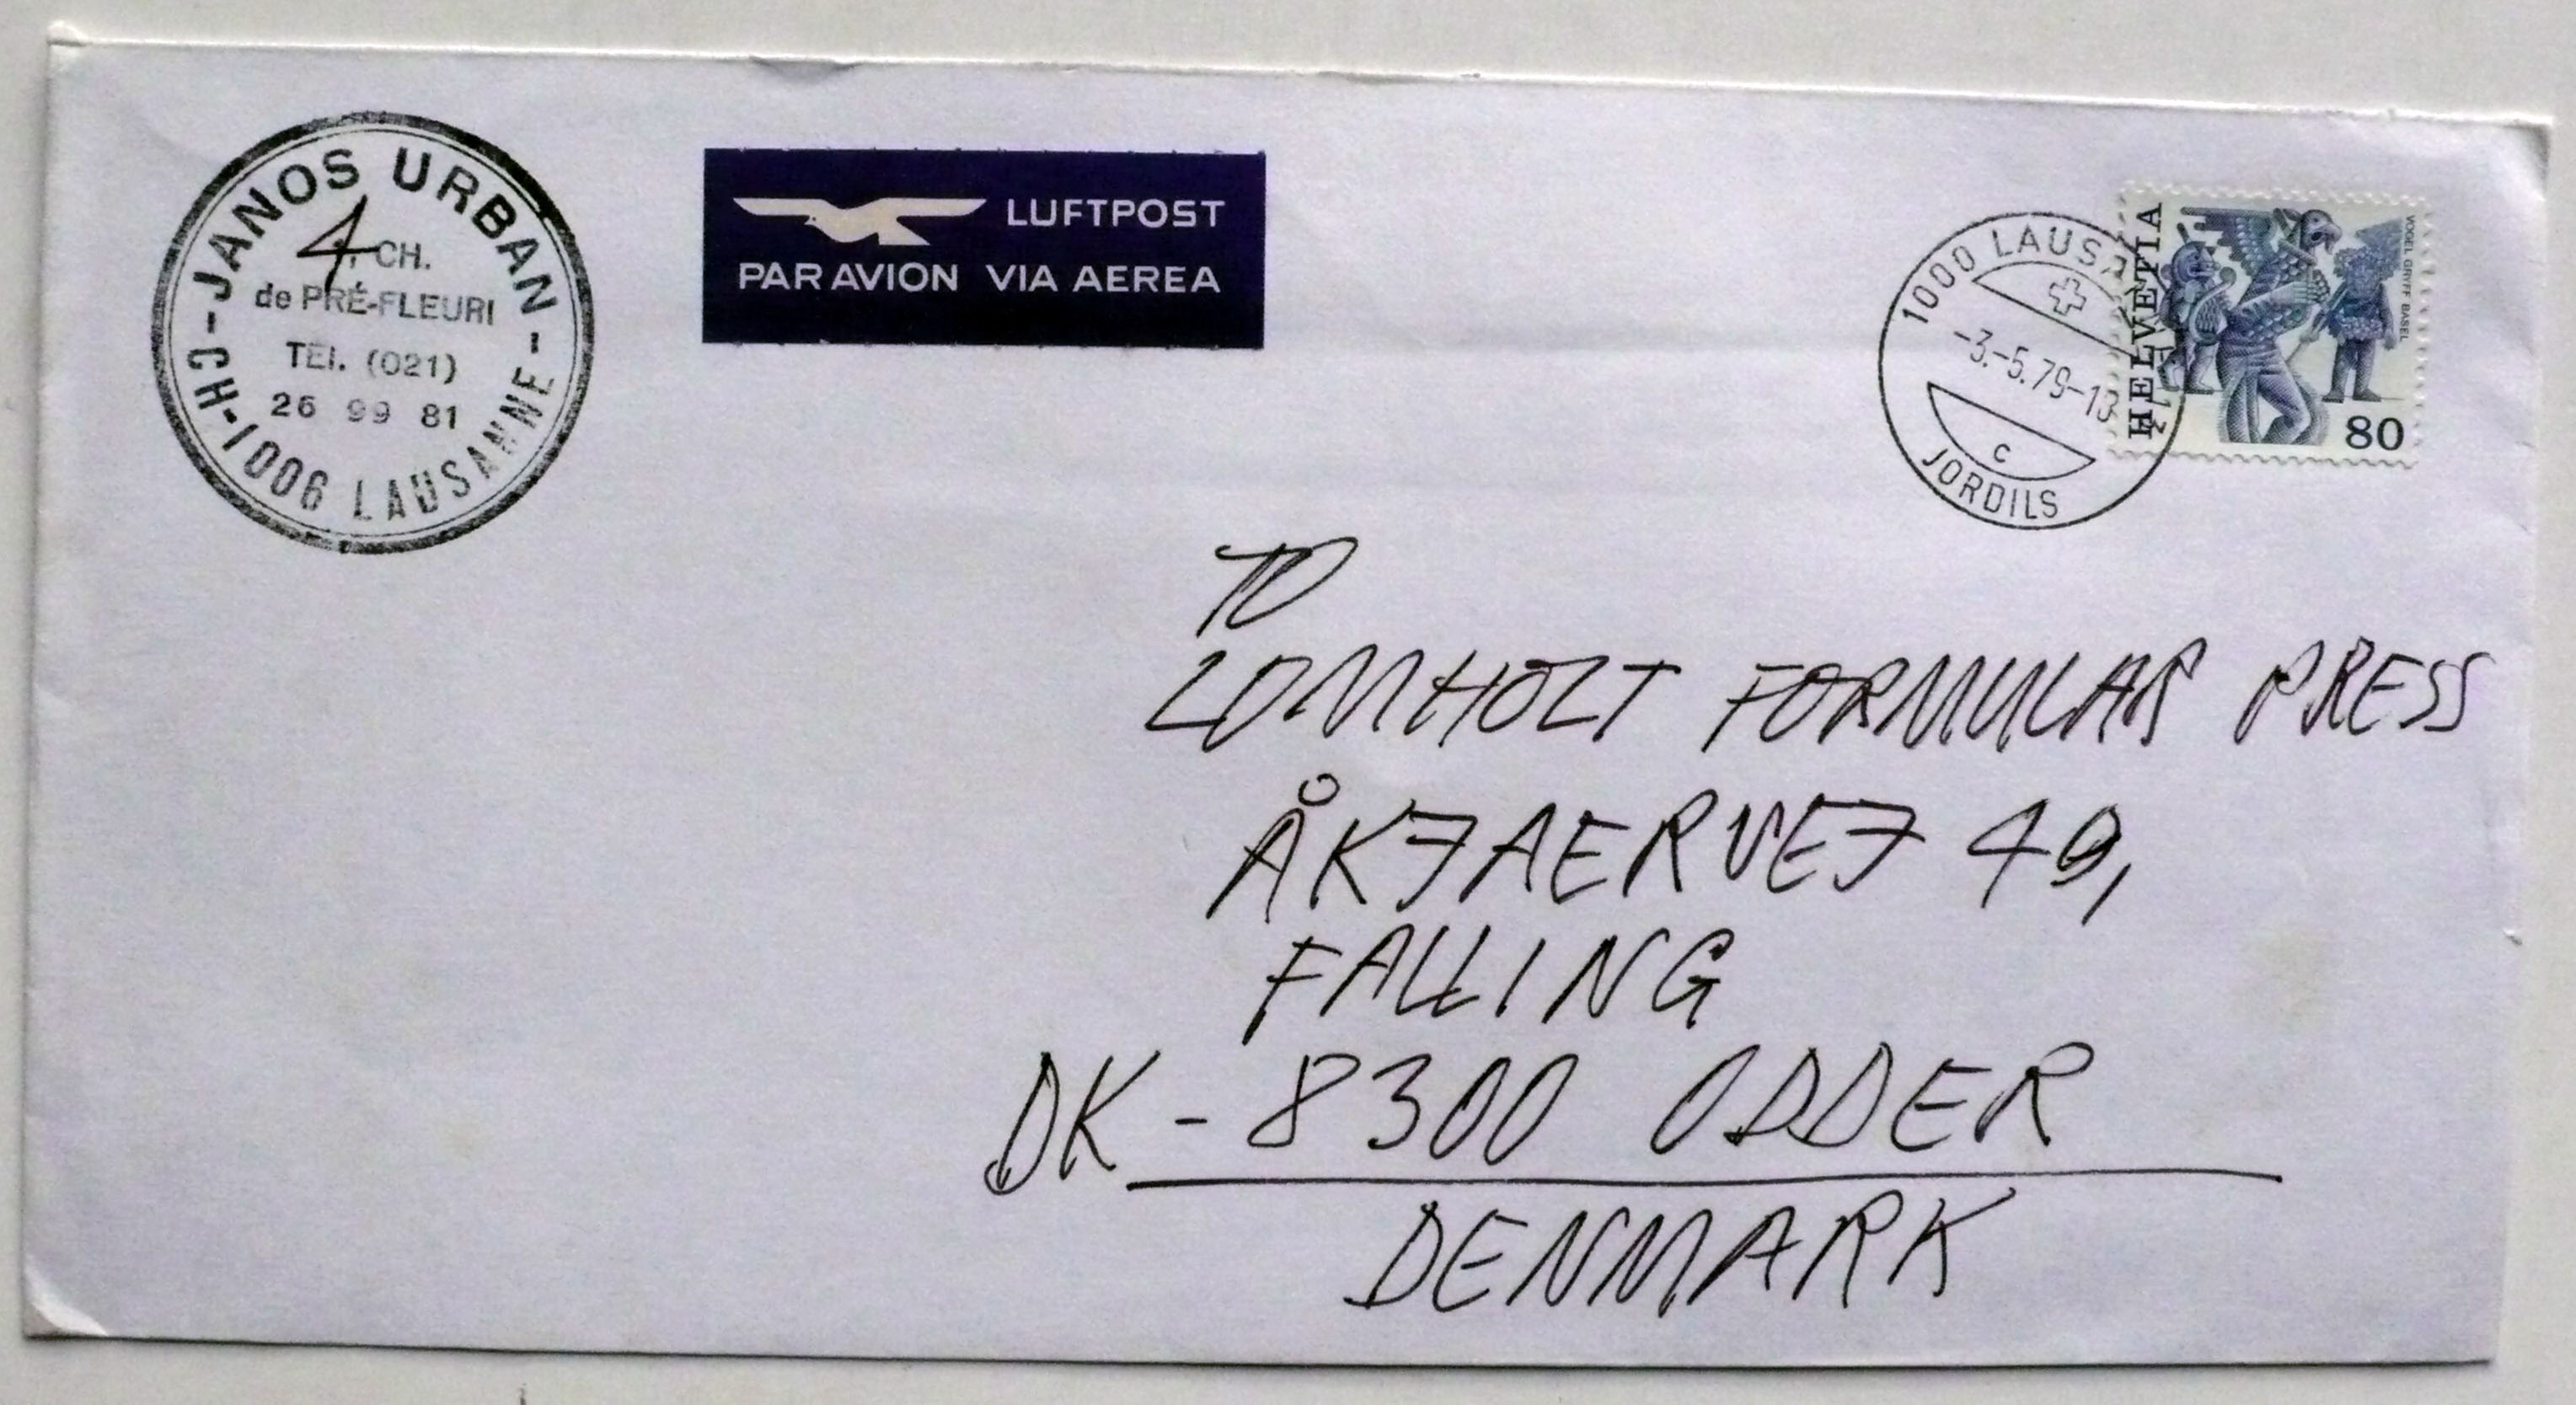 JANOS URBAN
4 CH.
de PRÉ-FLEURI
TEL. (021)
26 99 81
-CH-1006 LAUSANNE-
LUFTPOST
PAR AVION VIA AEREA
1000 LAUSA
-3.-5.79-13
C
JORDILS
HELVETIA
VOGEL GRYFF BASEL
80
TO
LOMHOLT FORMULAR PRESS
ÅKJAERVEJ 49,
FALLING
DK - 8300 ODDER
DENMARK